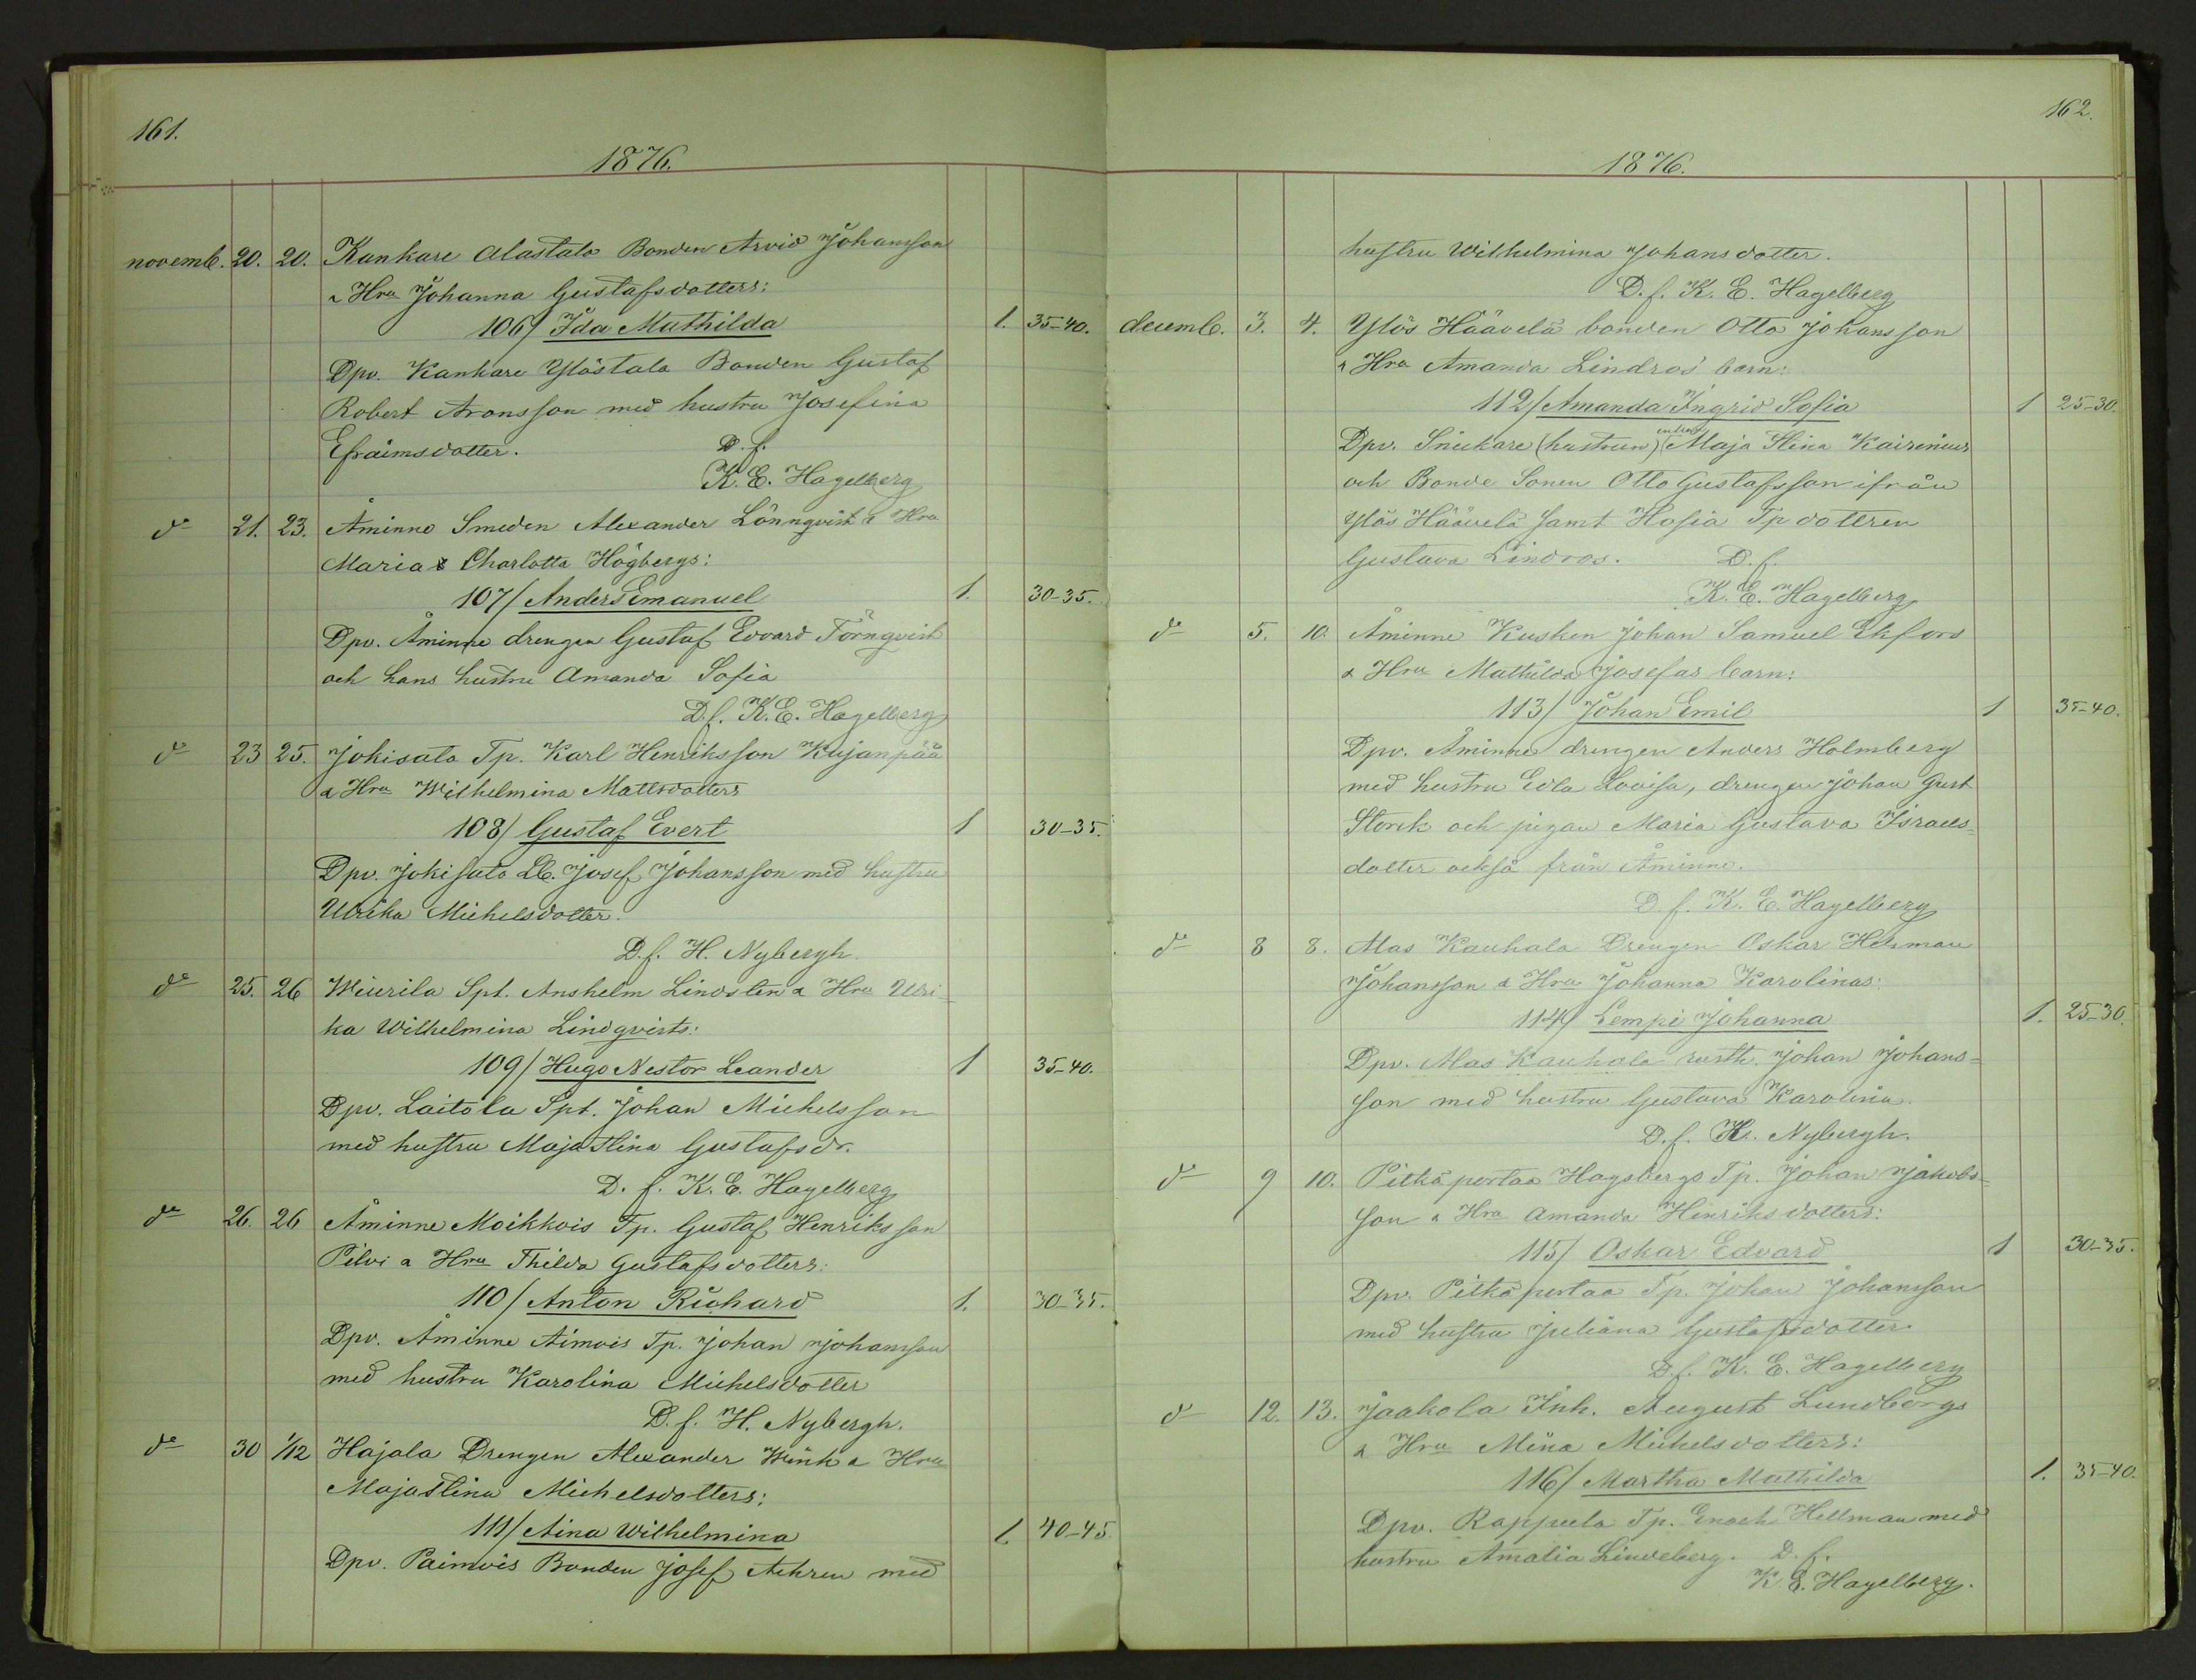 161.
1876.
novemb. 20. 20. Kankare Alastalo Bonden Arvid Johansson
a Hru Johanna Gustafsdotters:
106/ Ida Mathilda 1. 35-40.
Dpv. Kankare Ylöstalo Bonden Gustaf
Robert Aronsson med hustru Josefina
Efraimsdotter. D. f.
K. E. Hagelberg
do 21. 23. Åminne Smeden Alexander Lönnqvist a Hru
Maria Charlotta Högbergs:
107/ Anders Emanuel 1. 30-35.
Dpv. Åminne drengen Gustaf Edvard Törnqvist
och hans hustru Amanda Sofia
D. f. K. E. Hagelberg
do 23 25. Jokisato Tp. Karl Henriksson Kujanpää
a Hru Wilhelmina Mattsdotters
108/ Gustaf Evert 1 30-35.
Dpv. Jokisato Josef Johansson med hustru
Ulrika Michelsdotter.
D. f. H. Nybergh.
do 25. 26 Wiurila Spt. Anshelm Lindsten a Hru Ulri-
ka Wilhelmina Lindqvists:
109/ Hugo Nestor Leander 1 35-40.
Dpv. Laitola Spt. Johan Michelsson
med hustru Maja Stina Gustafsdr.
D. f. K. E. Hagelberg
do 26. 26 Åminne Moikkois Tp. Gustaf Henriksson
Pilvi a Hru Thilda Gustafsdotters:
110/ Anton Richard 1. 30-35.
Dpv. Åminne Aimois Tp. Johan Johansson
med hustru Karolina Michelsdotter
D. f. H. Nybergh.
do 30 1/12 Hajala Drengen Alexander Wink a Hru
Maja Stina Michelsdotters:
111/ Aina Wilhelmina 1. 40-45.
Dpv. Paimois Bonden Josef Achren med
162.
1876.
hustru Wilhelmina Johansdotter.
D. f. K. E. Hagelberg
decemb. 3. 4. Ylös Häävelä bonden Otto Johansson
a Hru Amanda Lindros' barn:
112/ Amanda Ingrid Sofia 1 25-30.
Dpv. Snickare (hustrun) enkan Maja Stina Kairenius
och Bonde Sonen Otto Gustafsson ifrån
Ylös Häävelä samt Hosia Tp dottren
Gustava Lindros. D. f.
K. E. Hagelberg
do 5. 10. Åminne Kusken Johan Samuel Ekfors
a Hru Mathilda Josefas barn:
113/ Johan Emil 1 35-40.
Dpv. Åminne drengen Anders Holmberg
med hustru Edla Lovisa, drengen Johan Gust
Storck och pigan Maria Gustava Israels-
dotter också från Åminne.
D. f. K. E. Hagelberg
do 8 8. Alas Kauhala Drengen Oskar Herman
Johansson a Hru Johanna Karolinas:
114/ Lempi Johanna 1. 25-30.
Dpv. Alas Kauhala rusth. Johan Johans-
son med hustru Gustava Karolina.
D. f. H. Nybergh.
do 9 10. Pitkäportaa Hagsbergs Tp. Johan Jakobs-
son a Hru Amanda Henriksdotters:
115/ Oskar Edvard 1 30-35.
Dpv. Pitkäportaa Tp. Johan Johansson
med hustru Juliana Gustafsdotter
D. f. K. E. Hagelberg
do 12. 13. Jaakola Inh. August Lundbergs
a Hru Mina Michelsdotters:
116/ Martha Mathilda 1. 35-40.
Dpv. Rappula Tp. Enoch Hellman med
hustru Amalia Lindeberg. D. f.
K. E. Hagelberg.